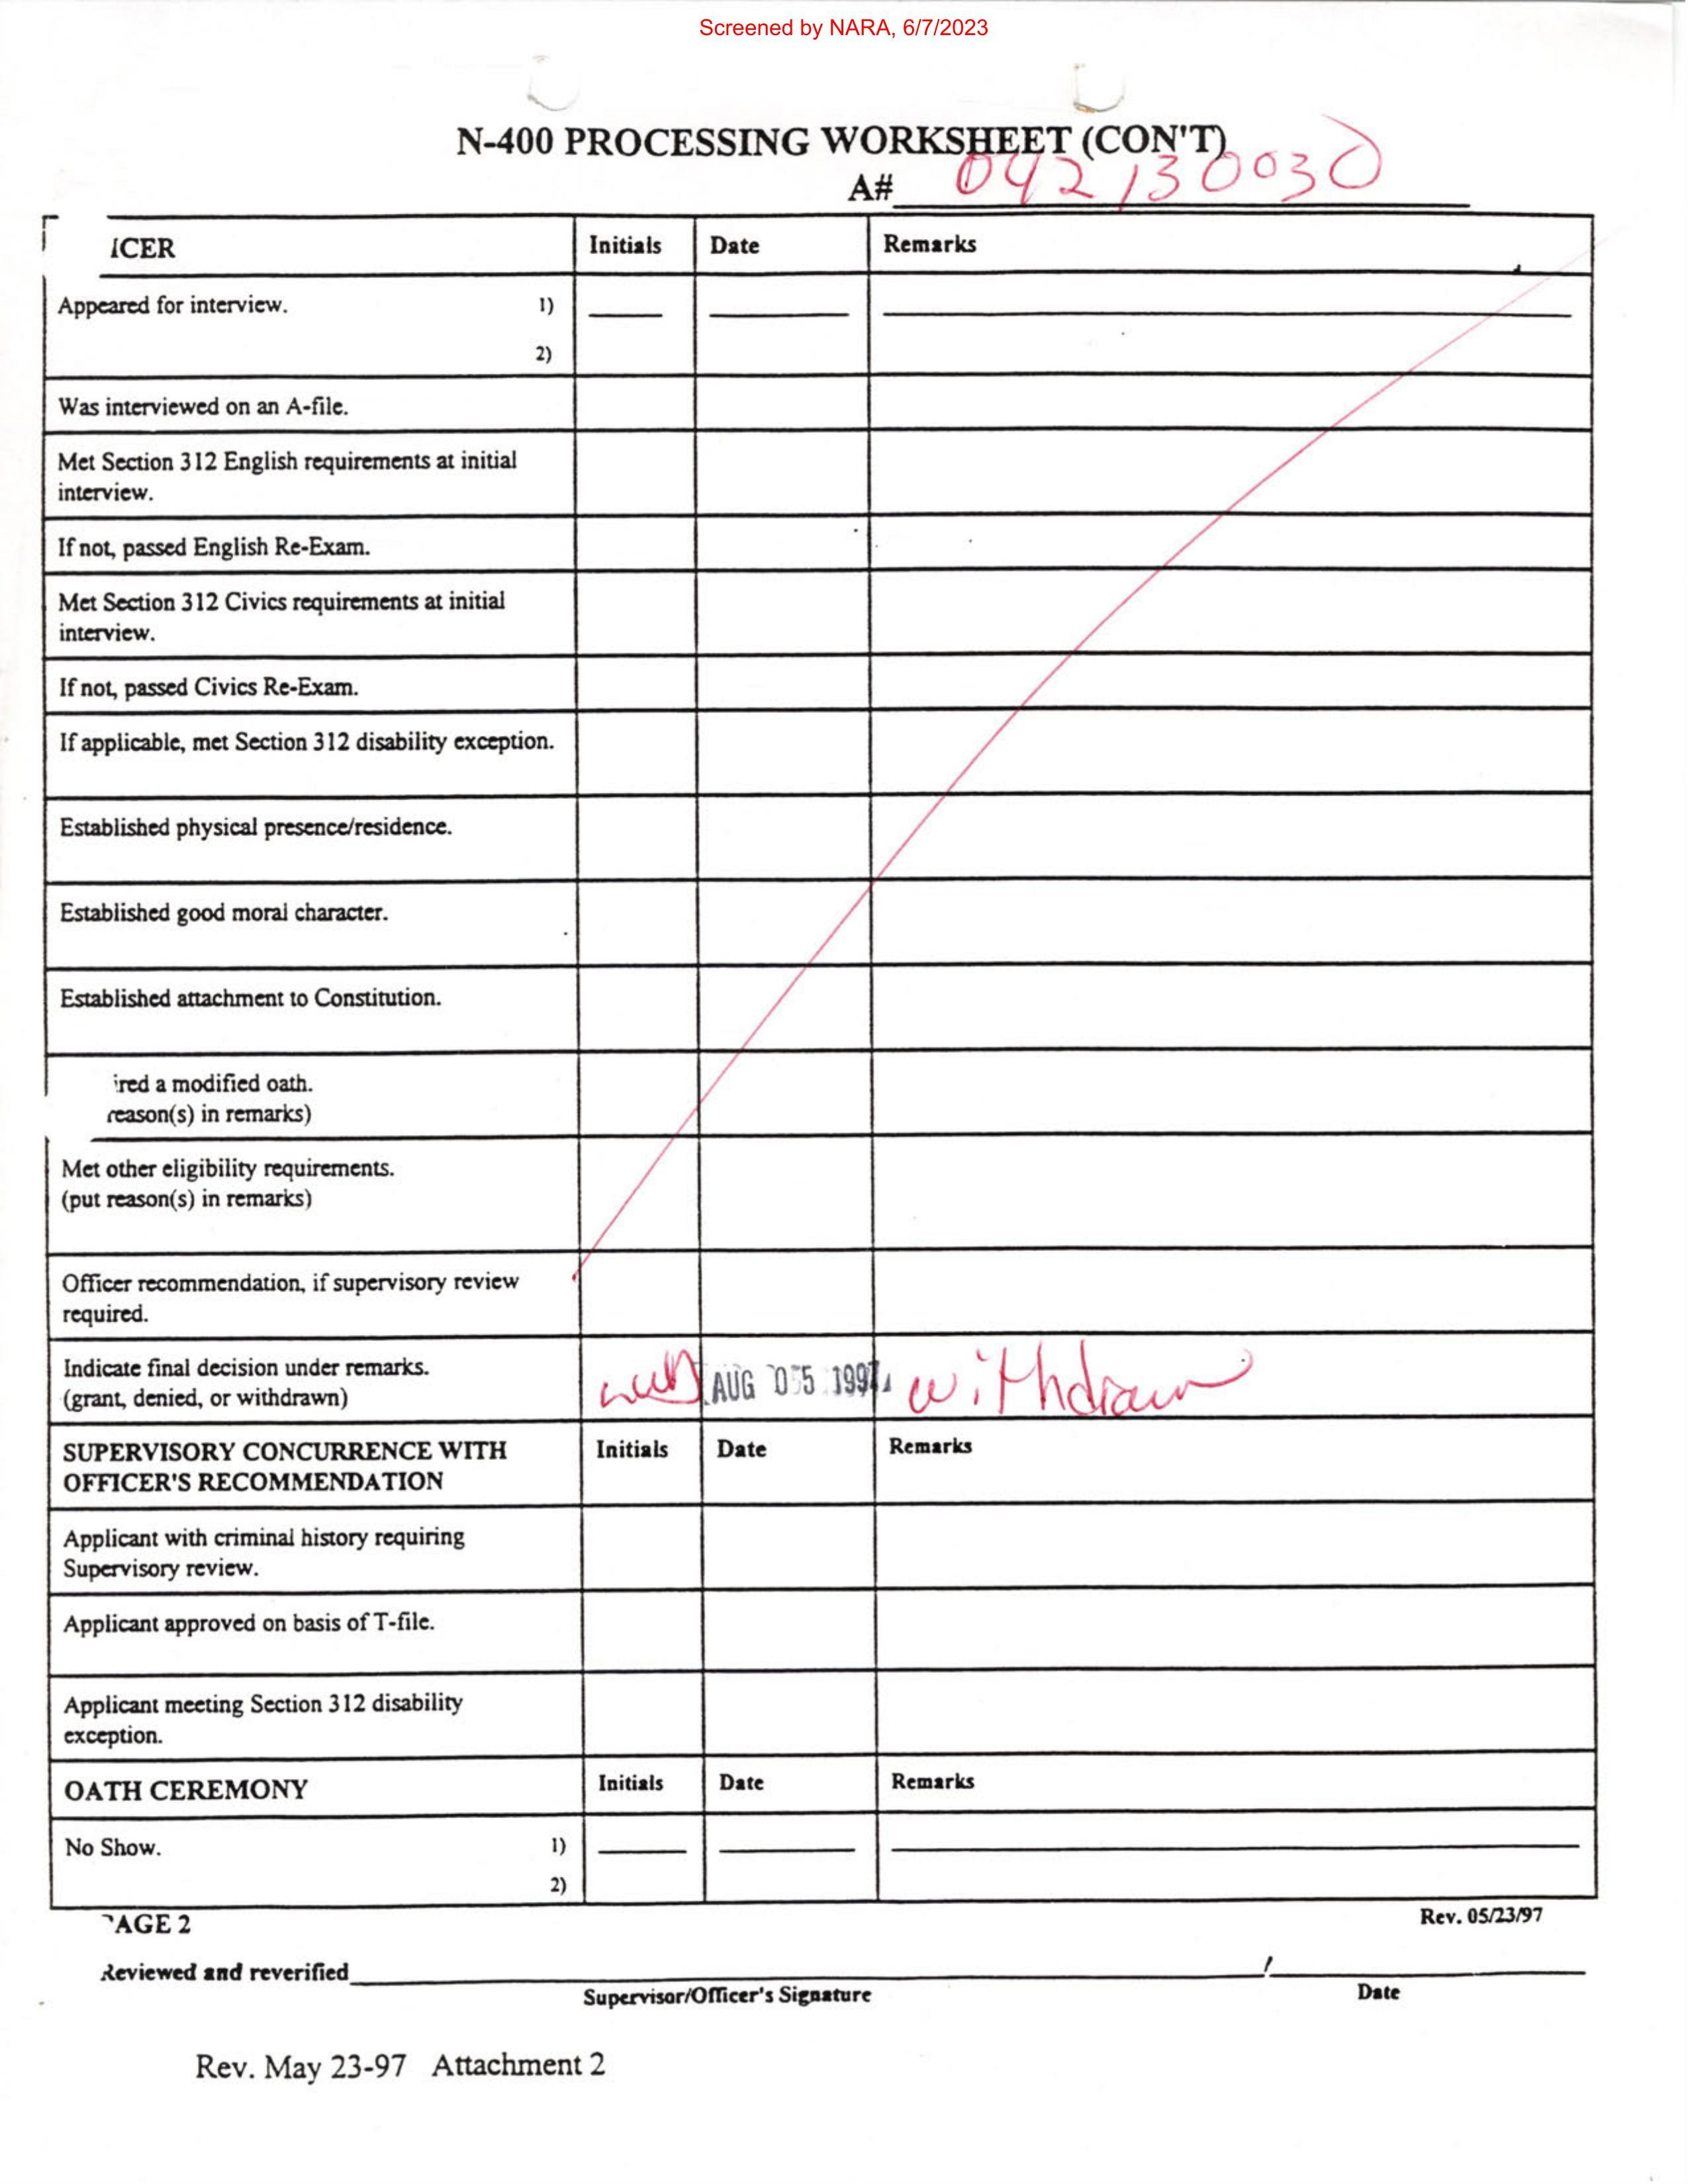 Screened by NARA, 6/7/2023
N-400 PROCESSING WORKSHEET (CON'T)
A# 042130030
ICER Initials Date Remarks
Appeared for interview. 1)
2)
Was interviewed on an A-file.
Met Section 312 English requirements at initial
interview.
If not, passed English Re-Exam.
Met Section 312 Civics requirements at initial
interview.
If not, passed Civics Re-Exam.
If applicable, met Section 312 disability exception.
Established physical presence/residence.
Established good moral character.
Established attachment to Constitution.
ired a modified oath.
reason(s) in remarks)
Met other eligibility requirements.
(put reason(s) in remarks)
Officer recommendation, if supervisory review
required.
Indicate final decision under remarks.
(grant, denied, or withdrawn) AUG 05 1997 withdrawn
SUPERVISORY CONCURRENCE WITH Initials Date Remarks
OFFICER'S RECOMMENDATION
Applicant with criminal history requiring
Supervisory review.
Applicant approved on basis of T-file.
Applicant meeting Section 312 disability
exception.
OATH CEREMONY Initials Date Remarks
No Show. 1)
2)
PAGE 2 Rev. 05/23/97
Reviewed and reverified /
Supervisor/Officer's Signature Date
Rev. May 23-97 Attachment 2